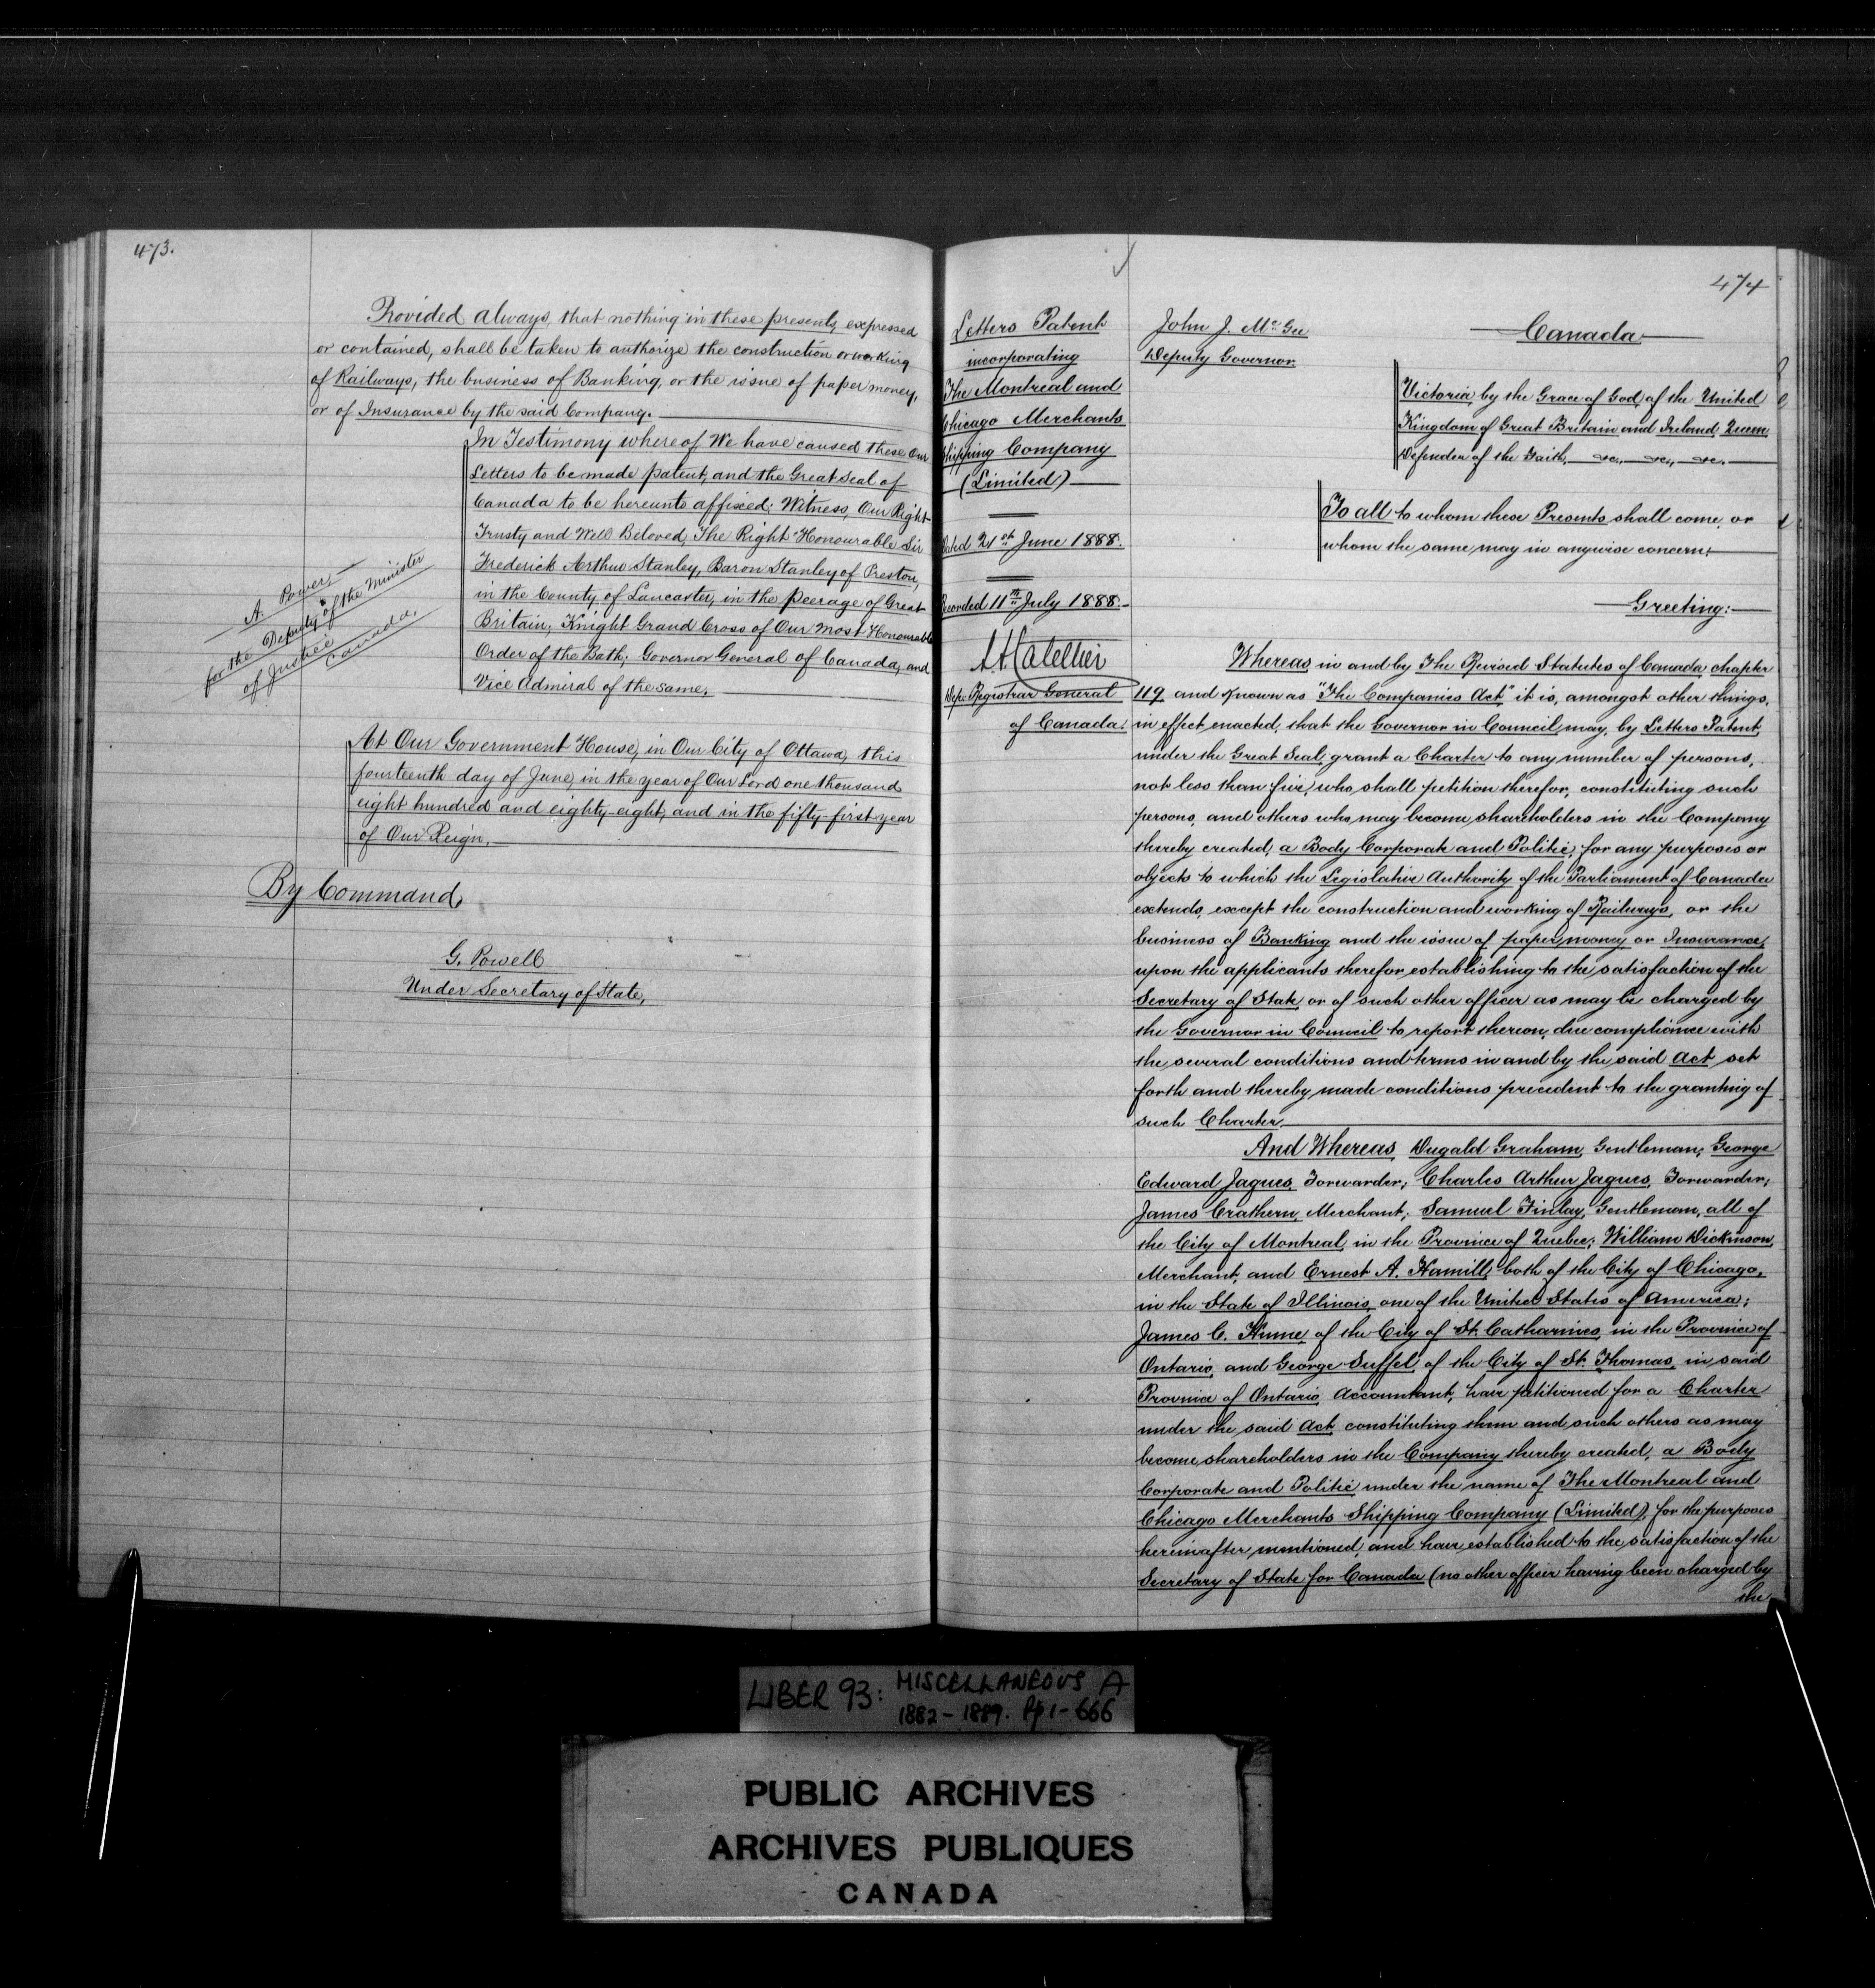 473.
Provided always, that nothing in these presents expressed
or contained, shall be taken to authorize the construction or working
of Railways, the business of Banking, or the issue of paper money,
or of Insurance by the said Company.
In Testimony whereof We have caused these Our
Letters to be made patent, and the Great Seal of
Canada to be hereunto affixed: Witness, Our Right
Trusty and Well Beloved, The Right Honourable Sir
Frederick Arthur Stanley, Baron Stanley of Preston,
in the County of Lancaster, in the Peerage of Great
Britain; Knight Grand Cross of Our Most Honourable
Order of the Bath; Governor General of Canada, and
Vice Admiral of the same.
A. Power
for the Deputy of the Minister
of Justice
Canada.
At Our Government House, in Our City of Ottawa, this
fourteenth day of June, in the year of Our Lord one thousand
eight hundred and eighty-eight, and in the fifty-first year
of Our Reign.
By Command,
G. Powell
Under Secretary of State,
474
Letters Patent
incorporating
The Montreal and
Chicago Merchants
Shipping Company
(Limited)
Dated 21st June 1888.
Recorded 11th July 1888.
Depy. Registrar General
of Canada.
John J. McGee
Deputy Governor.
Canada
Victoria, by the Grace of God, of the United
Kingdom of Great Britain and Ireland, Queen,
Defender of the Faith, &c., &c., &c.
To all to whom these Presents shall come, or
whom the same may in anywise concern;
Greeting:
Whereas, in and by The Revised Statutes of Canada, chapter
119, and known as "The Companies Act," it is, amongst other things,
in effect enacted, that the Governor in Council may, by Letters Patent,
under the Great Seal, grant a Charter to any number of persons,
not less than five, who shall petition therefor, constituting such
persons, and others who may become shareholders in the Company
thereby created, a Body Corporate and Politic, for any purposes or
objects to which the Legislative Authority of the Parliament of Canada
extends, except the construction and working of Railways, or the
business of Banking and the issue of paper money or Insurance,
upon the applicants therefor establishing to the satisfaction of the
Secretary of State, or of such other officer as may be charged by
the Governor in Council to report thereon, due compliance with
the several conditions and terms in and by the said Act set
forth and thereby made conditions precedent to the granting of
such Charter.
And Whereas, Dugald Graham, Gentleman; George
Edward Jaques, Forwarder; Charles Arthur Jaques, Forwarder;
James Crathern, Merchant; Samuel Finlay, Gentleman, all of
the City of Montreal, in the Province of Quebec; William Dickinson,
Merchant, and Ernest A. Hamill, both of the City of Chicago,
in the State of Illinois, one of the United States of America;
James C. Hume, of the City of St. Catharines, in the Province of
Ontario, and George Suffel, of the City of St. Thomas, in said
Province of Ontario, Accountant, have petitioned for a Charter
under the said Act, constituting them and such others as may
become shareholders in the Company thereby created, a Body
Corporate and Politic, under the name of The Montreal and
Chicago Merchants Shipping Company (Limited), for the purposes
hereinafter mentioned, and have established to the satisfaction of the
Secretary of State for Canada (no other officer having been charged by
the
LIBER 93: MISCELLANEOUS A
1882-1889. Pp 1-666
PUBLIC ARCHIVES
ARCHIVES PUBLIQUES
CANADA